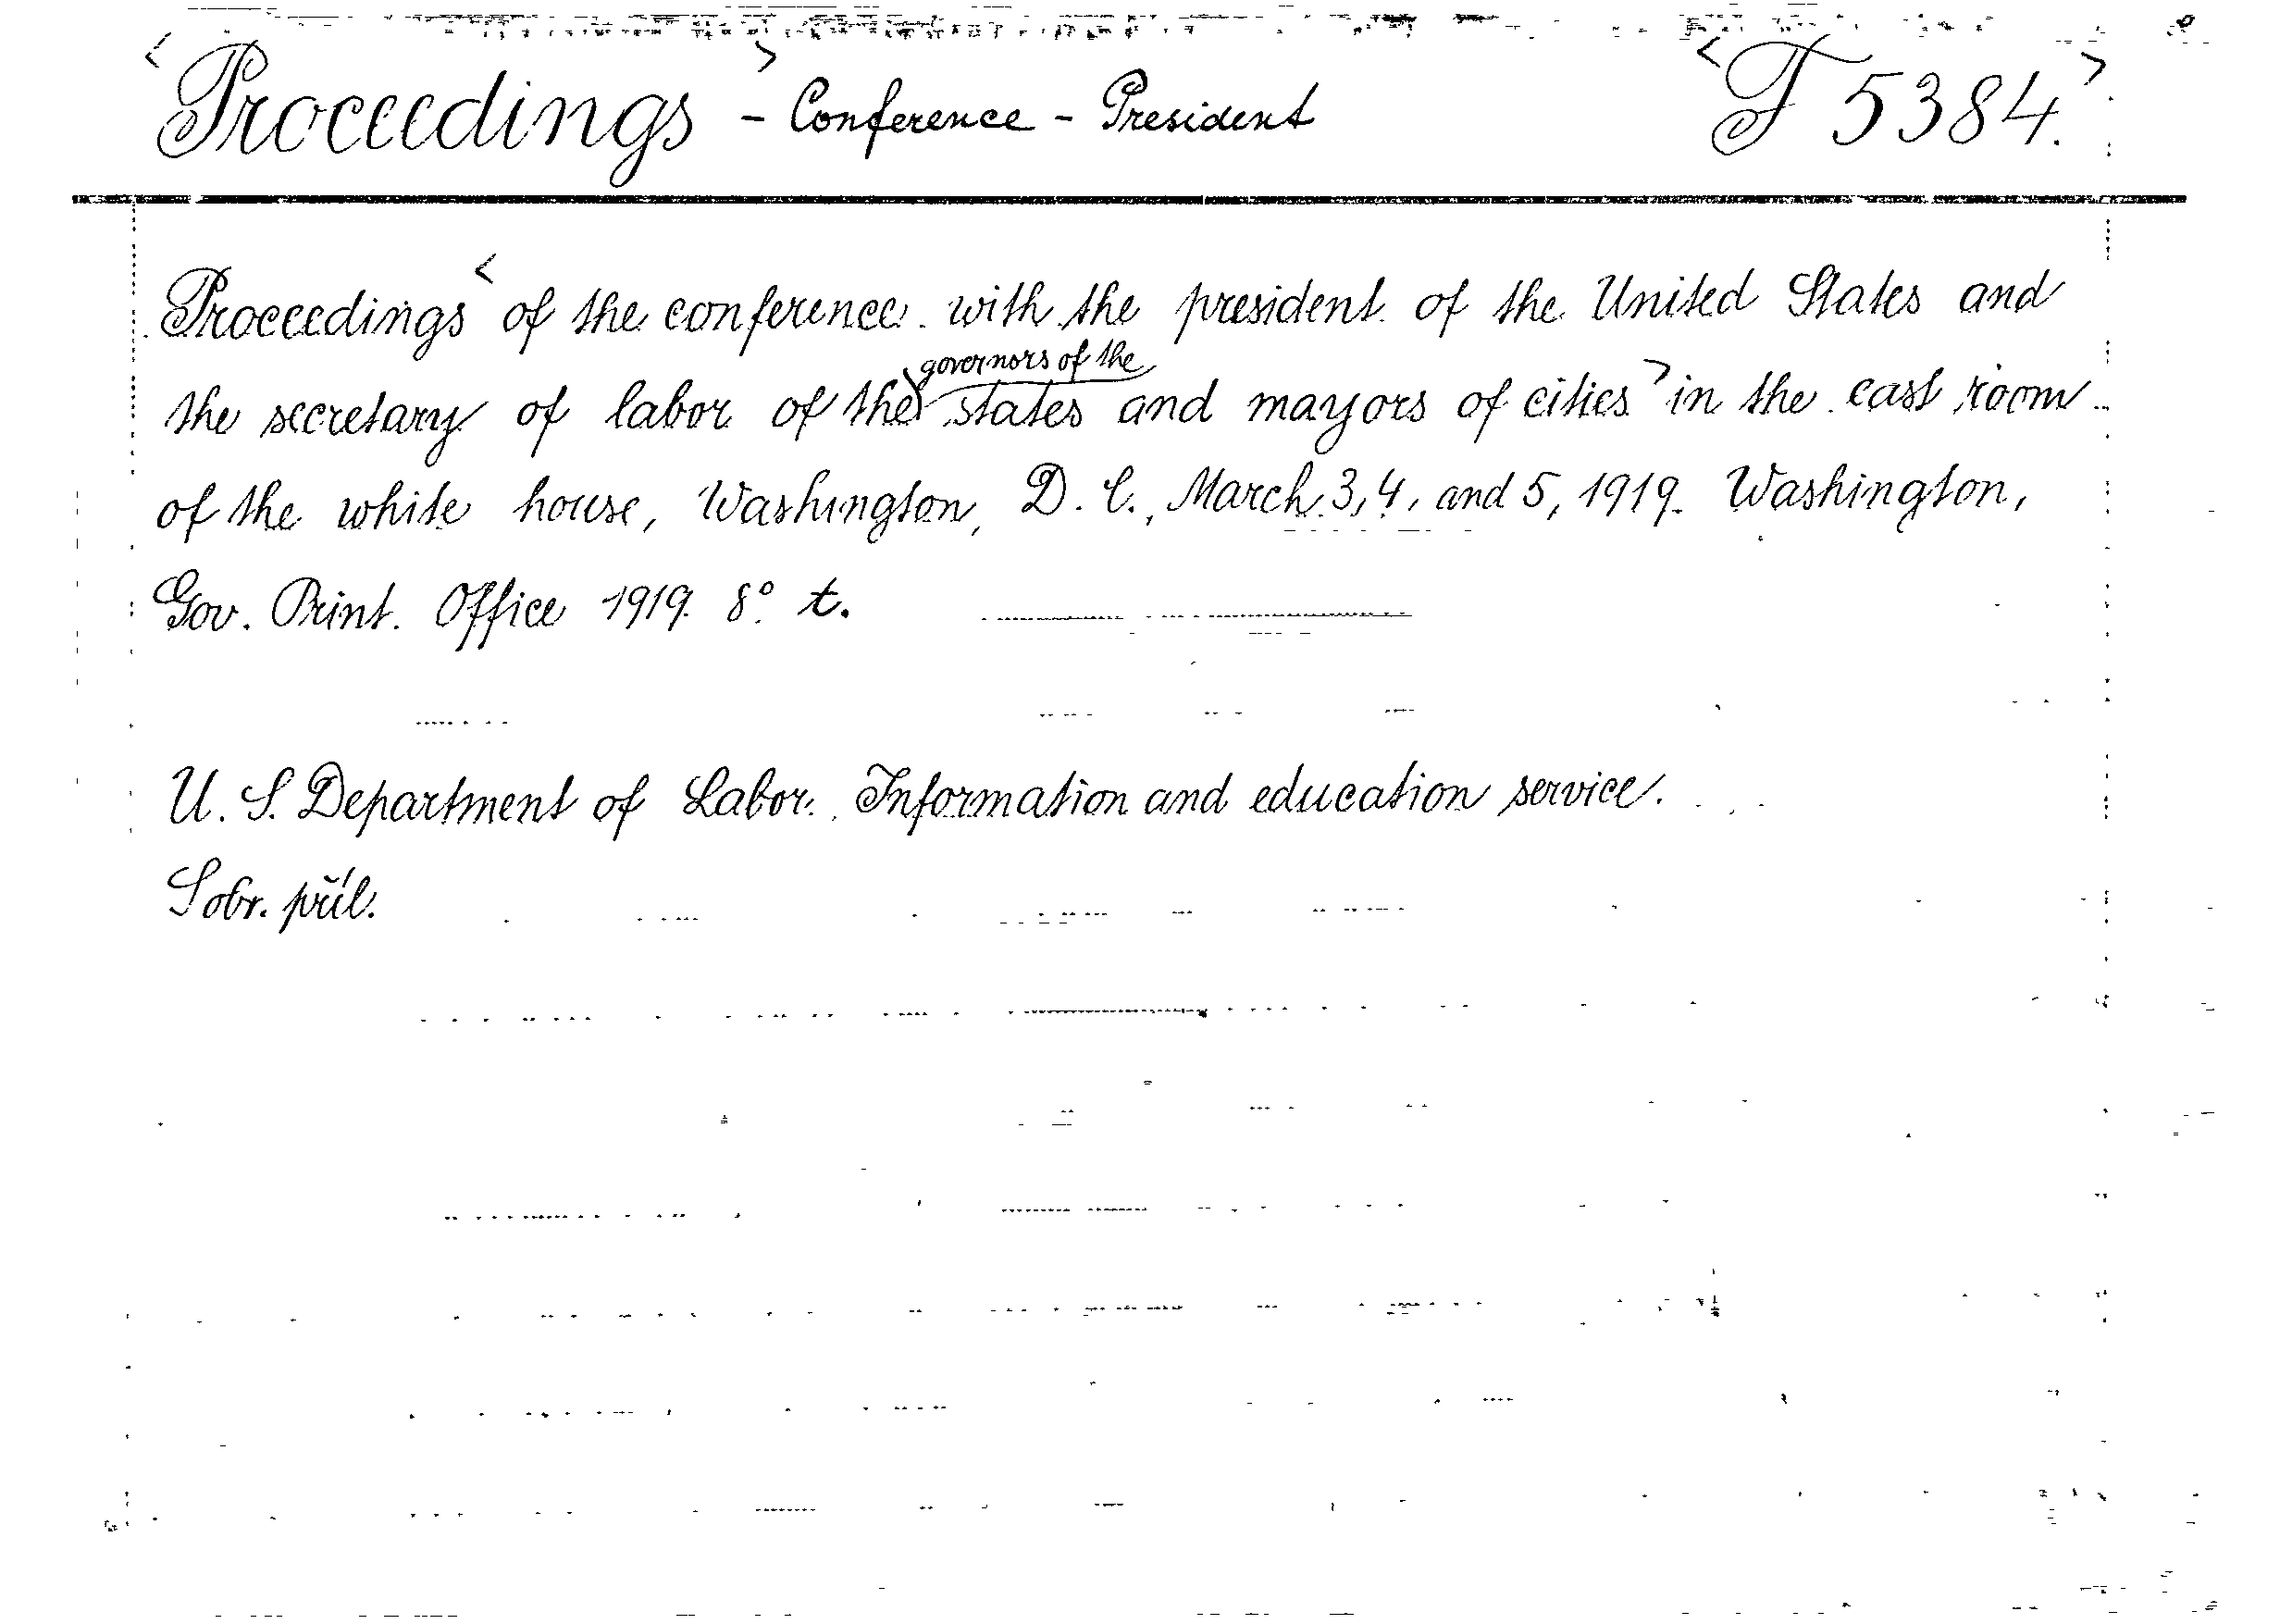 <Proceedings> - Conference - President <F 5384.>
Proceedings <of the conference with the president of the United States and
the secretary of labor of the governors of the states and mayors of cities> in the east room
of the white house, Washington, D. C., March 3, 4, and 5, 1919. Washington,
Gov. Print. Office 1919. 8° t.
U. S. Department of Labor. Information and education service.
Sobr. příl.